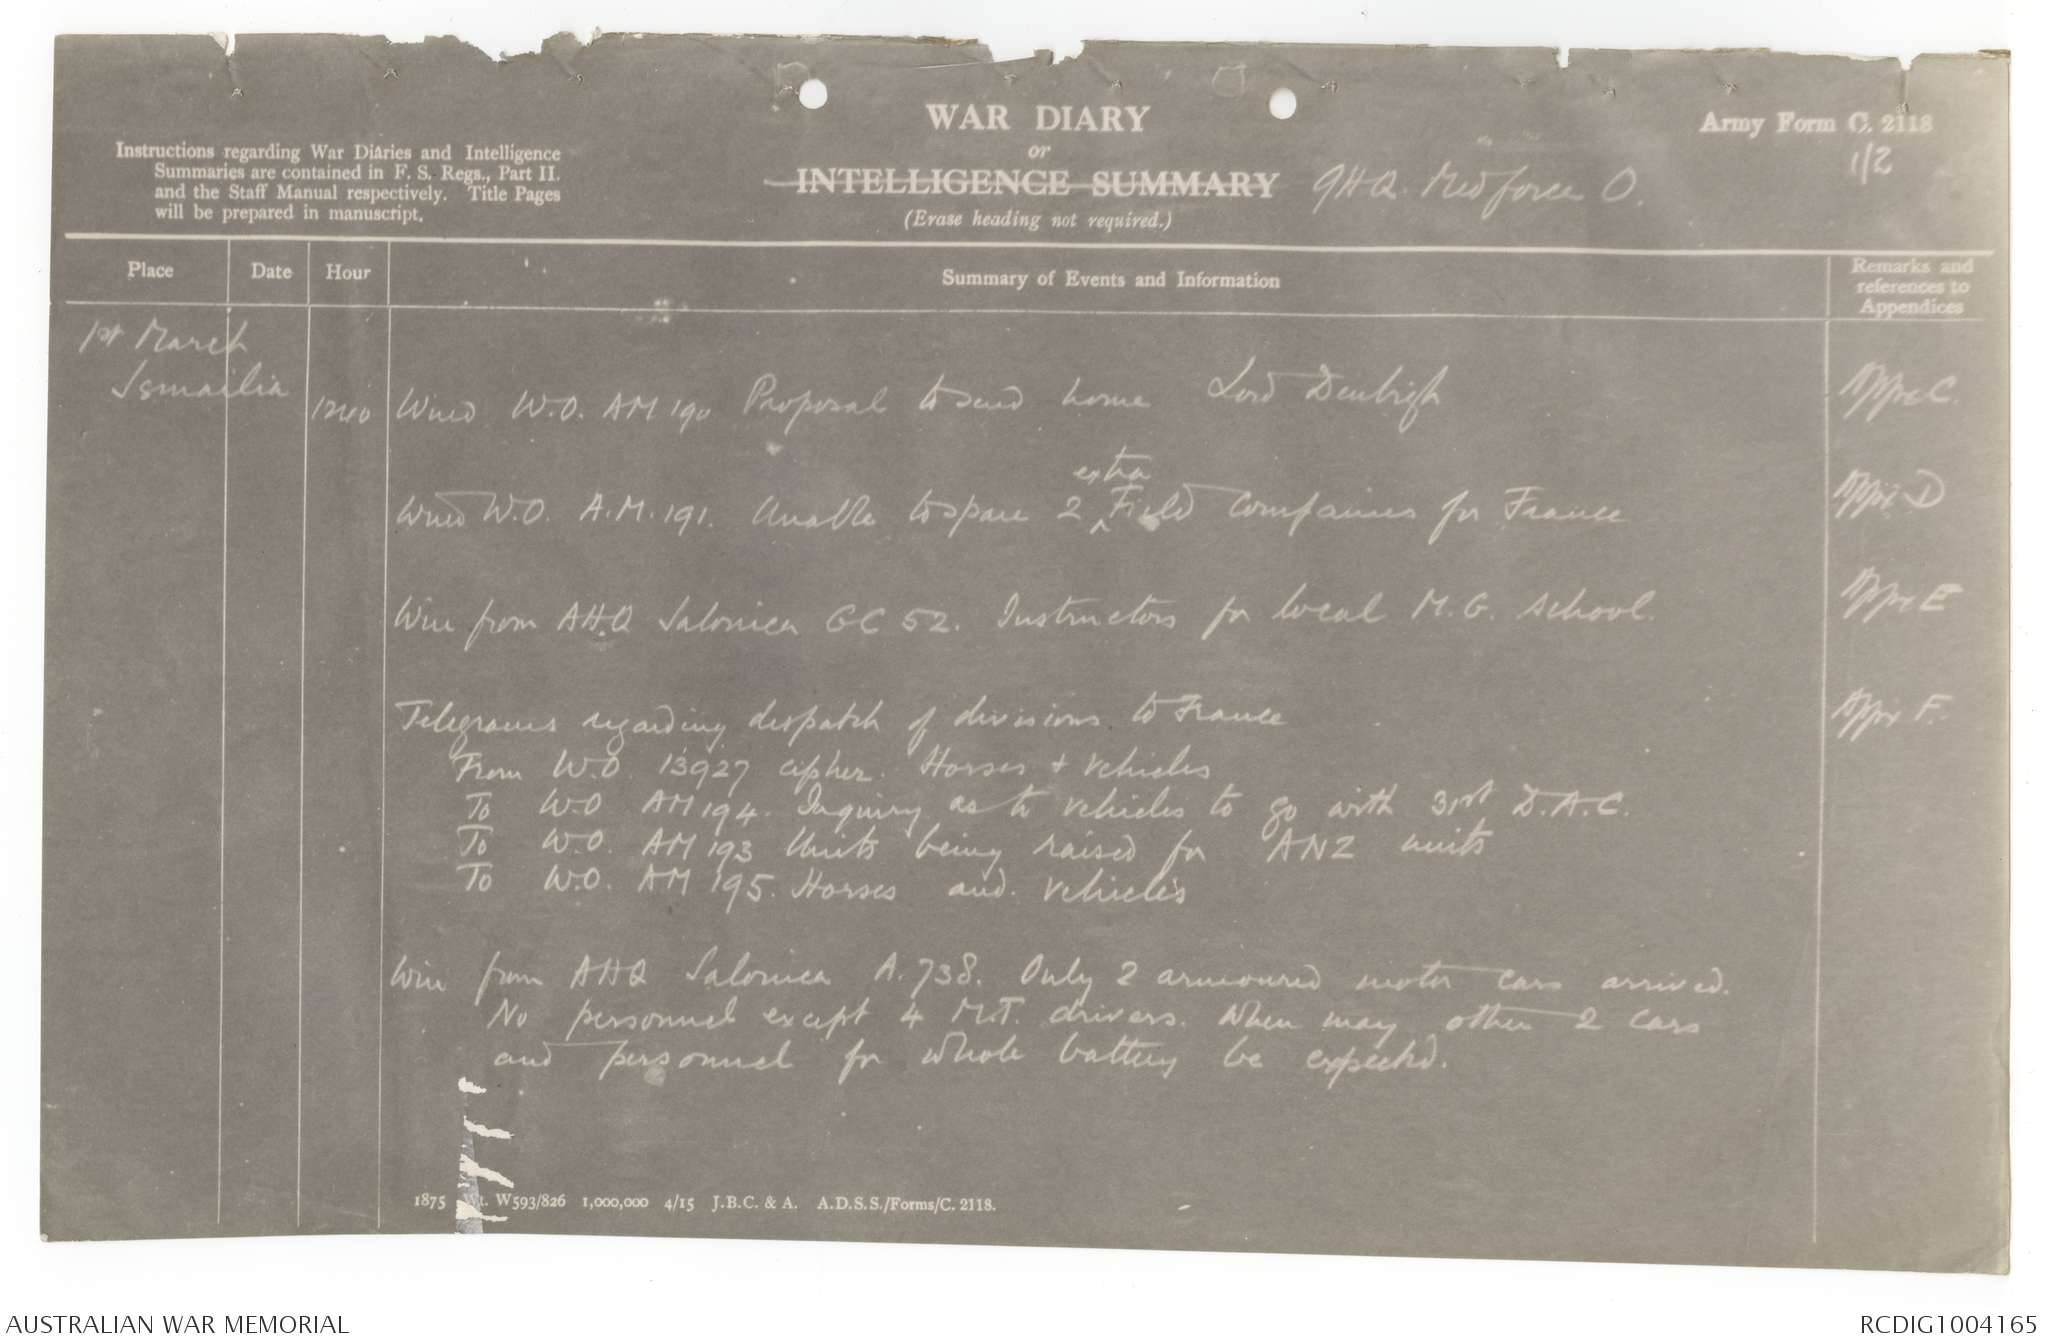 WAR DIARY
or
INTELLIGENCE SUMMARY
(Erase heading not required.)
GHQ. Medforce O.
Army Form C. 2118
1/2
Instructions regarding War Diaries and Intelligence
Summaries are contained in F. S. Regs., Part II.
and the Staff Manual respectively. Title Pages
will be prepared in manuscript.
Place Date Hour Summary of Events and Information Remarks and
references to
Appendices
1st March
Ismailia
1240 Wired W.O. AM 190 Proposal to send home Lord Denbigh Appx C.
extra
Wired W.O. A.M. 191. Unable to spare 2 ^ Field Companies for France Appx D
Wire from AHQ Salonica GC 52. Instructors for local M.G. School. Appx E
Telegrams regarding despatch of divisions to France Appx F.
From W.O. 13927 cipher. Horses + vehicles
To W.O AM 194. Inquiry as to vehicles to go with 31st D.A.C.
To W.O. AM 193 Units being raised for ANZ units
To W.O. AM 195. Horses and vehicles
Wire from AHQ Salonica A.738. Only 2 armoured motor cars arrived.
No personnel except 4 M.T. drivers. When may other 2 cars
and personnel for whole battery be expected.
1875 Wt. W593/826 1,000,000 4/15 J.B.C. & A. A.D.S.S./Forms/C. 2118.
AUSTRALIAN WAR MEMORIAL
RCDIG1004165